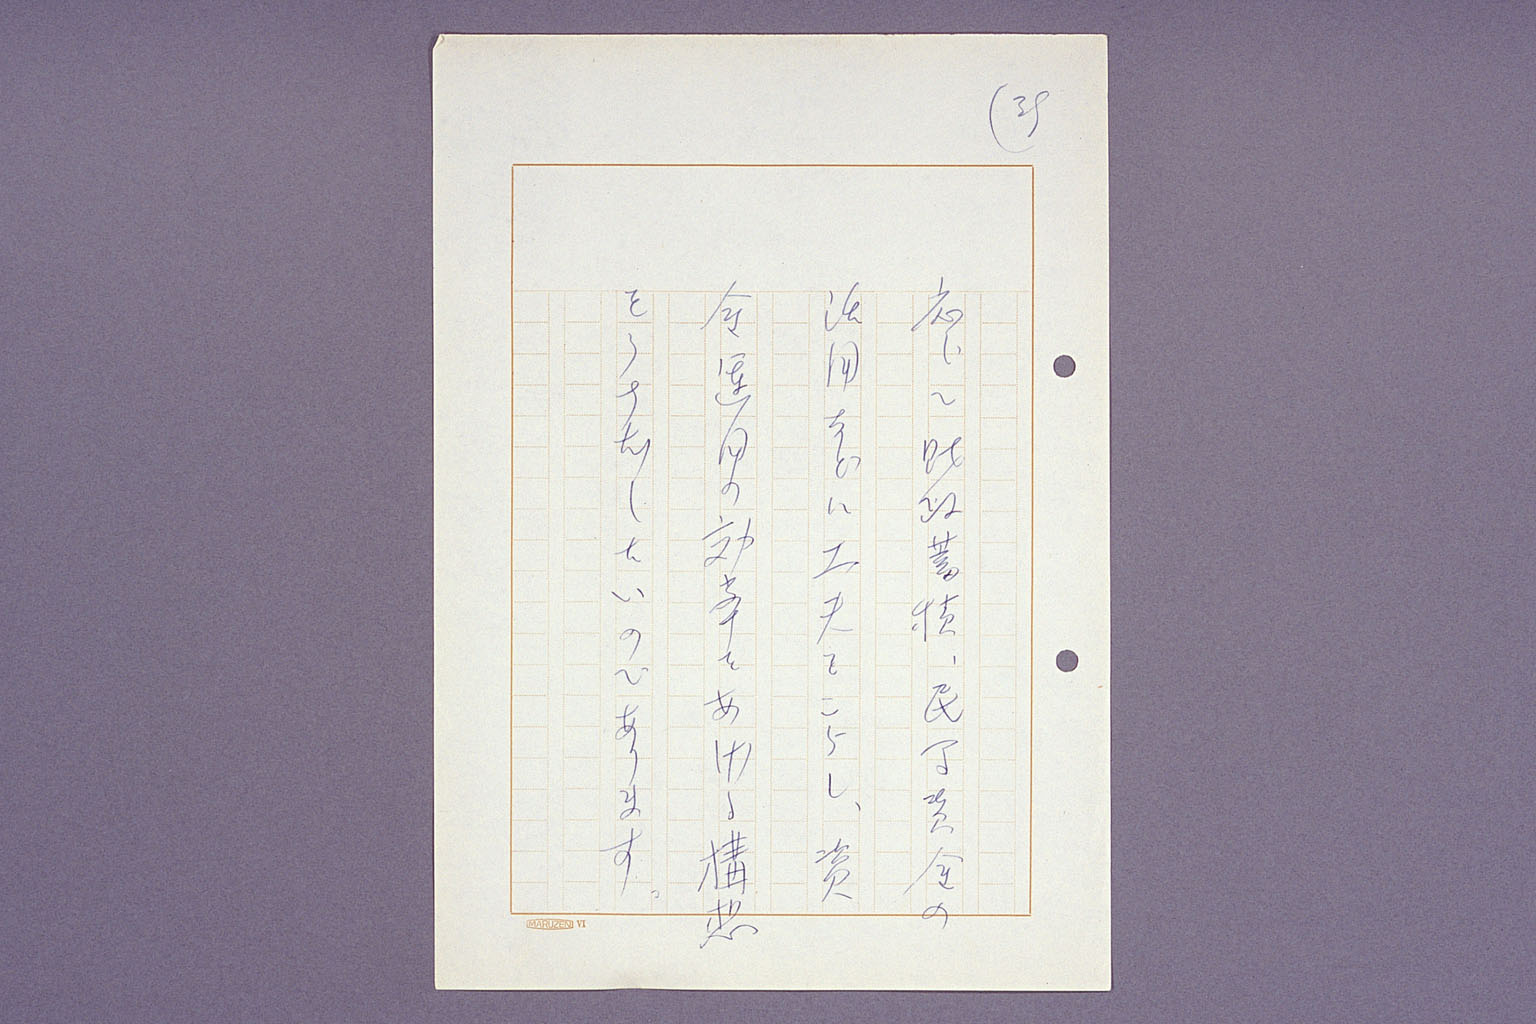 応じて財政蓄積、民間資金の
活用などに工夫をこらし、資
金運用の効率をあげる構想
をうち出したいのであります。
MARUZEN VI